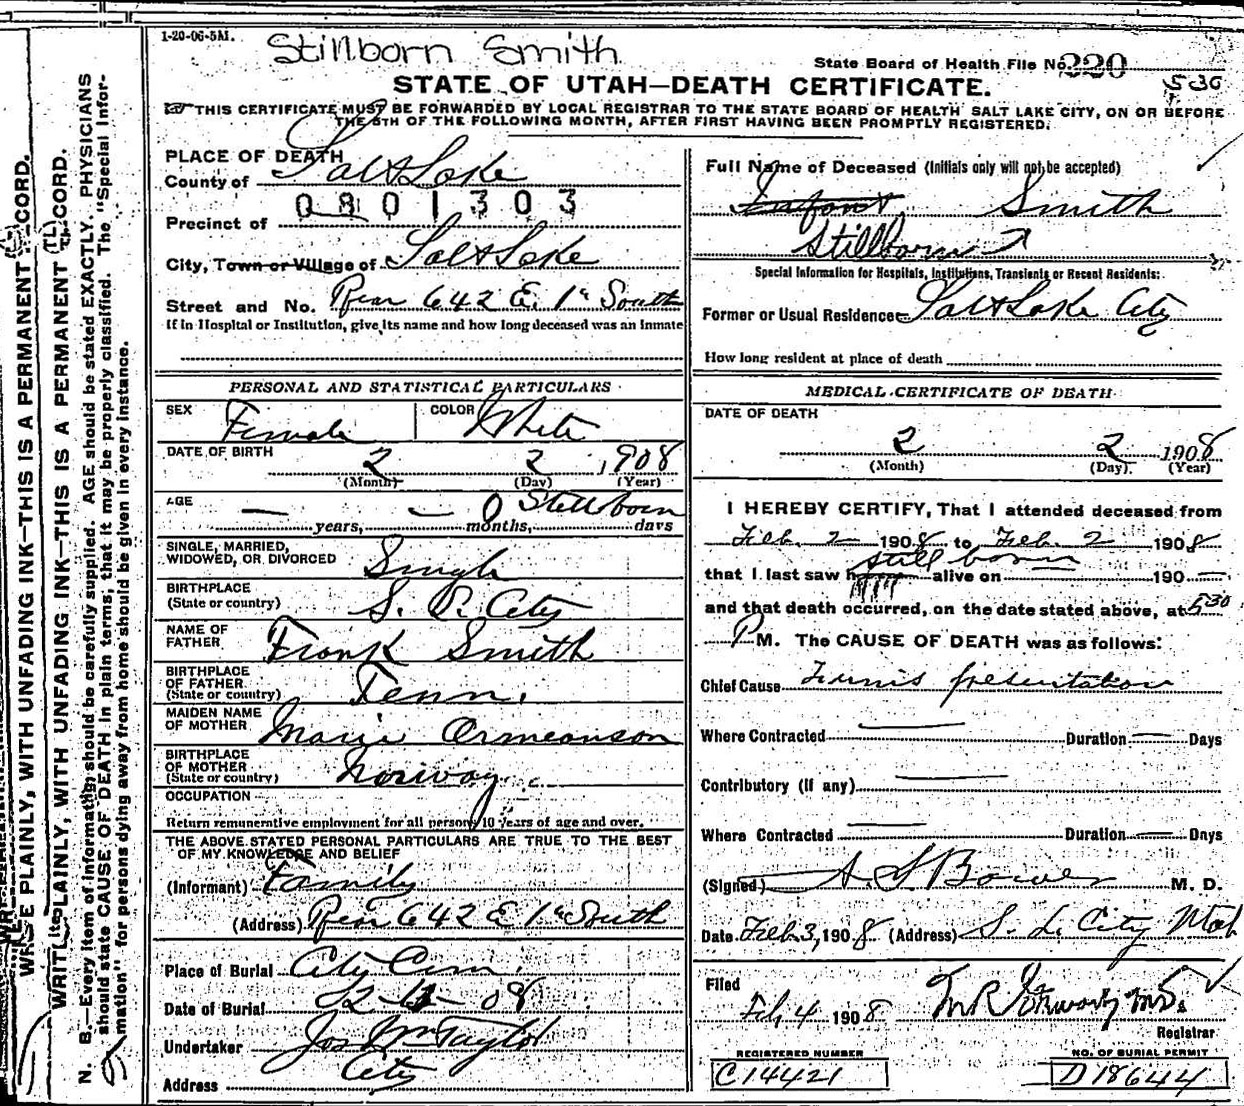 1-20-06-5M.
Stillborn Smith
State Board of Health File No. 220
STATE OF UTAH—DEATH CERTIFICATE.
5-30
THIS CERTIFICATE MUST BE FORWARDED BY LOCAL REGISTRAR TO THE STATE BOARD OF HEALTH SALT LAKE CITY, ON OR BEFORE
THE 5TH OF THE FOLLOWING MONTH, AFTER FIRST HAVING BEEN PROMPTLY REGISTERED.
PLACE OF DEATH
County of Salt Lake
0801303
Precinct of
City, Town or Village of Salt Lake
Street and No. Rear 642 E. 1st South
If in Hospital or Institution, give its name and how long deceased was an inmate
PERSONAL AND STATISTICAL PARTICULARS
SEX Female COLOR White
DATE OF BIRTH
2 2 1908
(Month) (Day) (Year)
AGE — years, — months, 0 Stillborn days
SINGLE, MARRIED,
WIDOWED, OR DIVORCED Single
BIRTHPLACE
(State or country) S. L. City
NAME OF
FATHER Frank Smith
BIRTHPLACE
OF FATHER
(State or country) Tenn.
MAIDEN NAME
OF MOTHER Marie
BIRTHPLACE
OF MOTHER
(State or country) Norway
OCCUPATION
Return remunerative employment for all persons 10 years of age and over.
THE ABOVE STATED PERSONAL PARTICULARS ARE TRUE TO THE BEST
OF MY KNOWLEDGE AND BELIEF
(Informant) Family
(Address) Rear 642 E 1st South
Place of Burial City Cem.
Date of Burial 08
Undertaker Jos Wm Taylor
Address City
Full Name of Deceased (Initials only will not be accepted)
Infant Smith
Stillborn
Special Information for Hospitals, Institutions, Transients or Recent Residents:
Former or Usual Residence Salt Lake City
How long resident at place of death
MEDICAL CERTIFICATE OF DEATH
DATE OF DEATH
2 2 1908
(Month) (Day) (Year)
I HEREBY CERTIFY, That I attended deceased from
Feb. 2 1908 to Feb. 2 1908
still born
that I last saw h alive on 190 —
and that death occurred, on the date stated above, at 5 30
P M. The CAUSE OF DEATH was as follows:
Chief Cause Funis presentation
Where Contracted — Duration — Days
Contributory (if any) —
Where Contracted — Duration — Days
(Signed) A. S. Bower M. D.
Date Feb. 3, 1908 (Address) S. L. City Utah
Filed
Feb. 4 1908
Registrar
REGISTERED NUMBER
C14421
NO. OF BURIAL PERMIT
D18644
WRITE PLAINLY, WITH UNFADING INK—THIS IS A PERMANENT RECORD.
WRITE PLAINLY, WITH UNFADING INK—THIS IS A PERMANENT RECORD.
N. B.—Every item of information should be carefully supplied. AGE should be stated EXACTLY. PHYSICIANS
should state CAUSE OF DEATH in plain terms, that it may be properly classified. The "Special Infor-
mation" for persons dying away from home should be given in every instance.